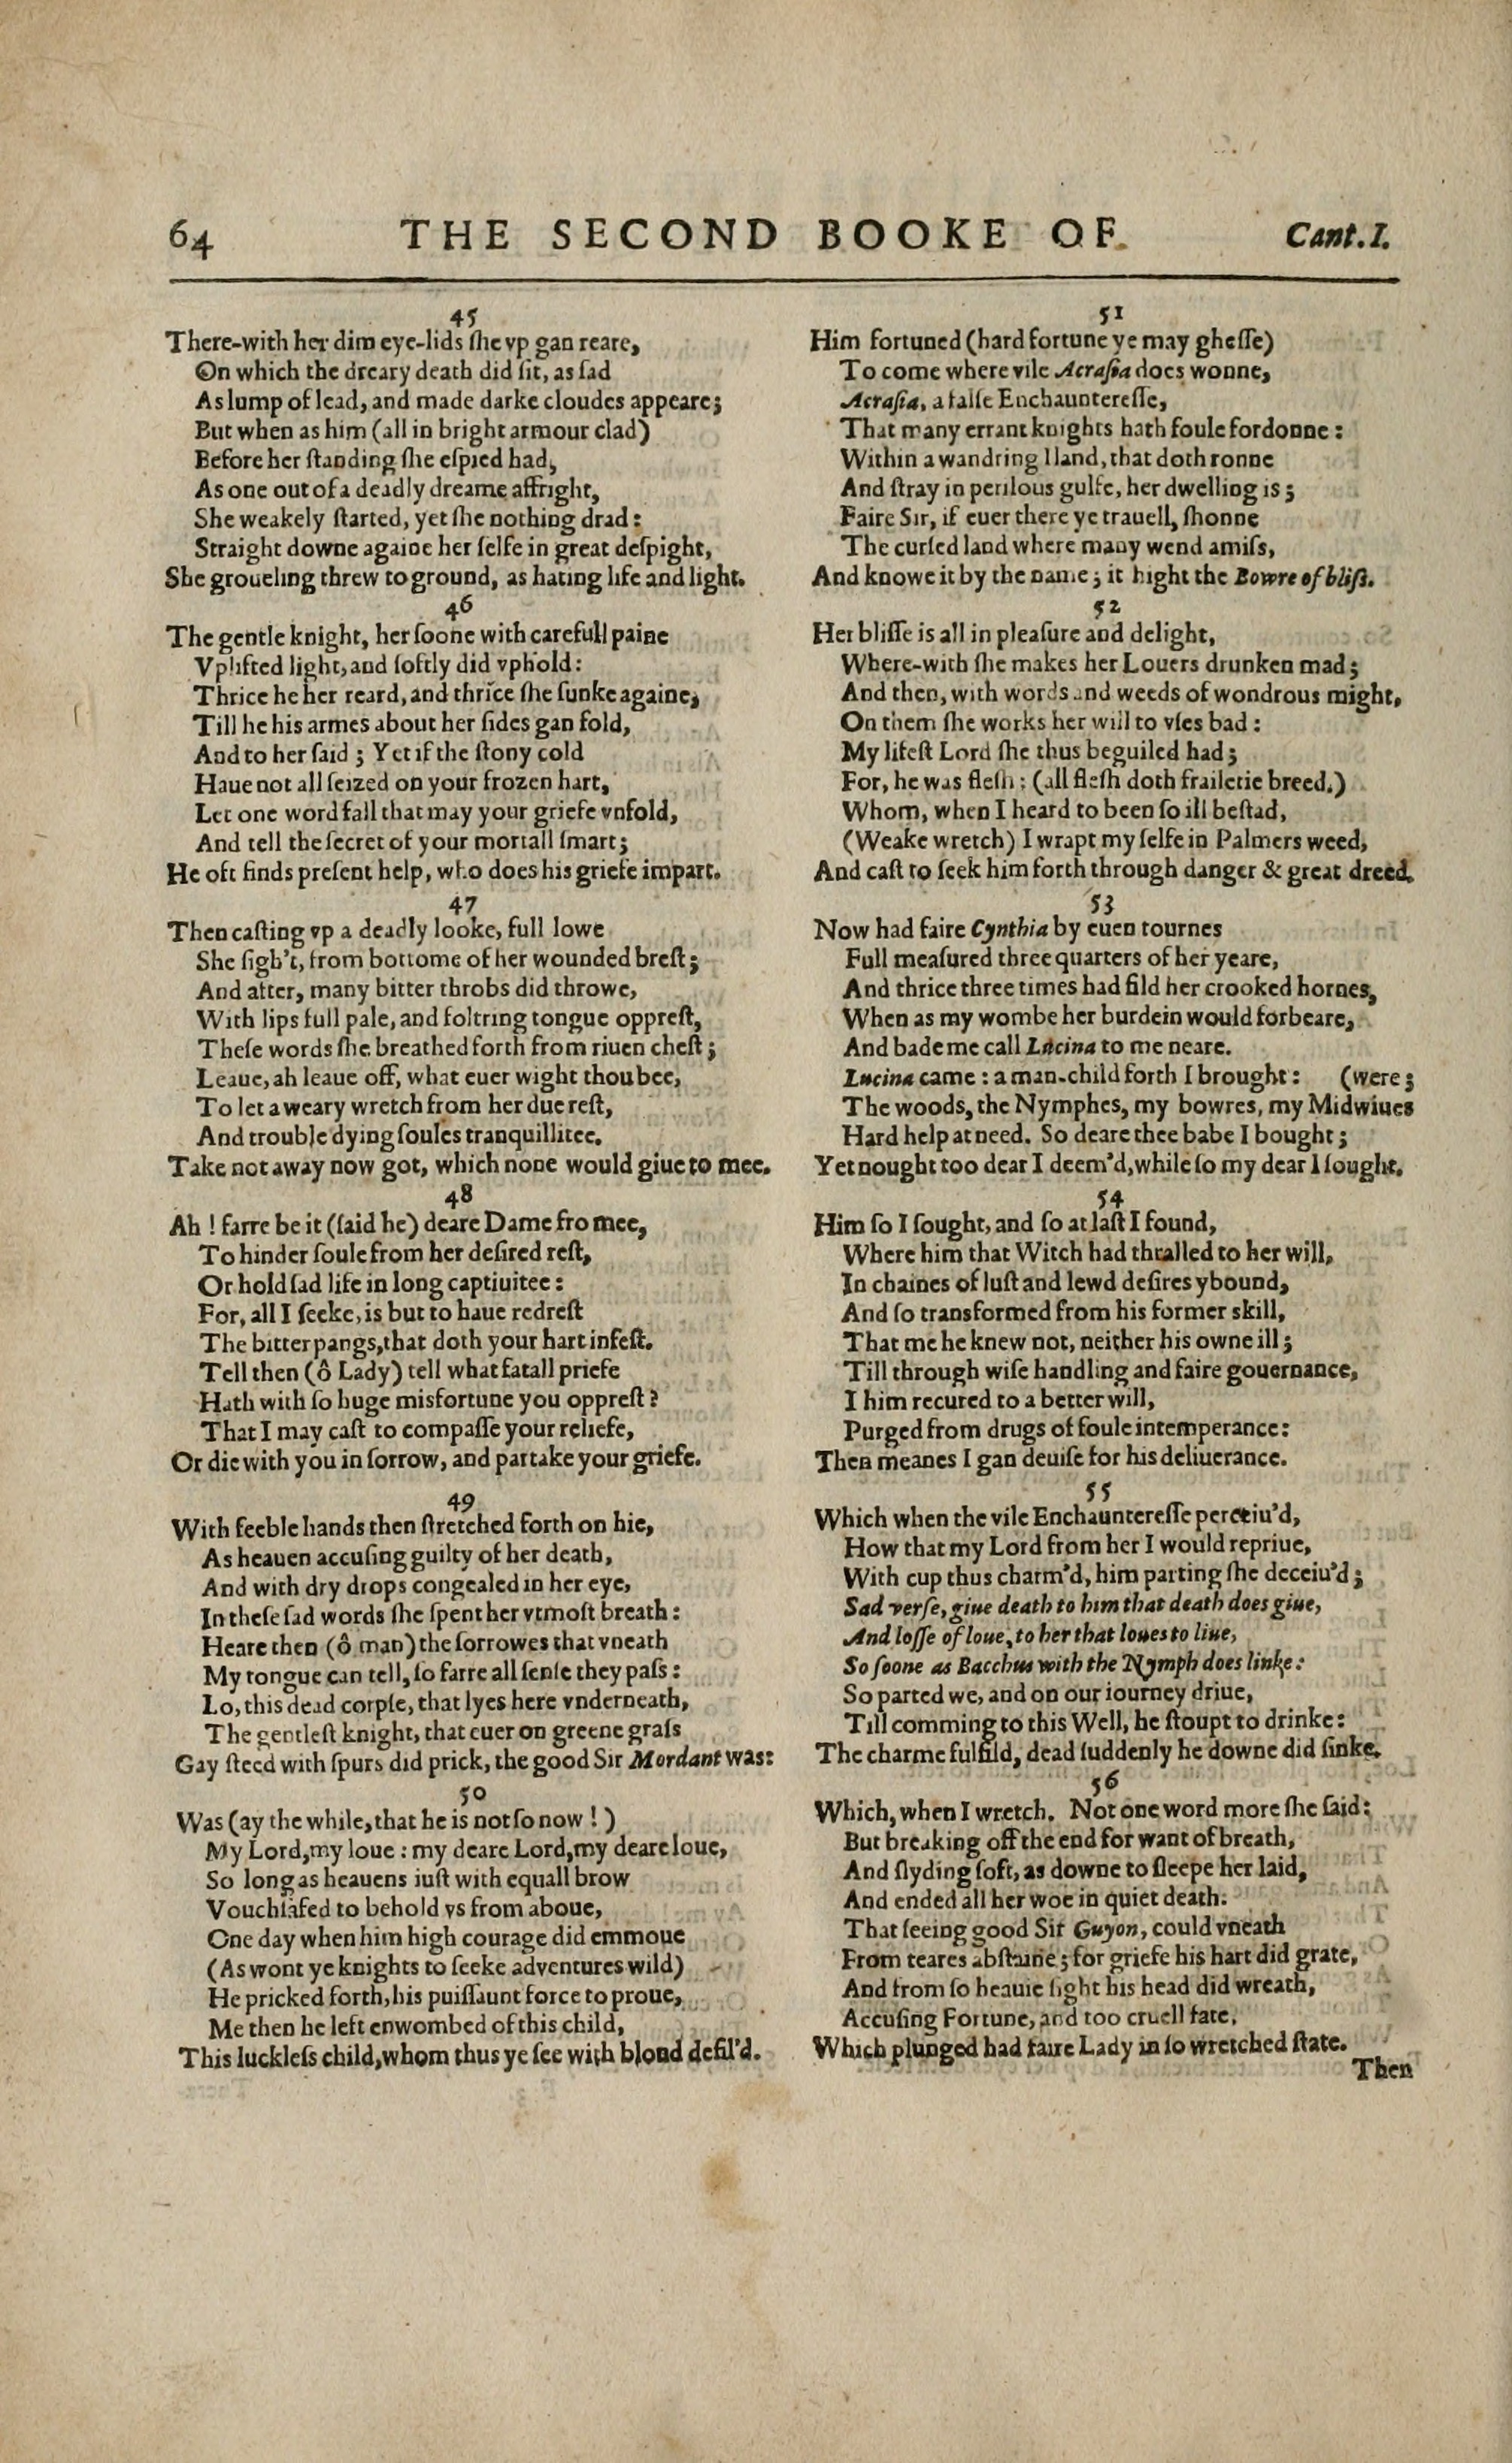 64 THE SECOND BOOKE OF Cant.I.
45
There-with her dim eye-lids ſhe vp gan reare,
On which the dreary death did ſit, as ſad
As lump of lead, and made darke cloudes appeare;
But when as him (all in bright armour clad)
Before her ſtanding ſhe eſpied had,
As one out of a deadly dreame affright,
She weakely ſtarted, yet ſhe nothing drad:
Straight downe againe her ſelfe in great deſpight,
She groueling threw to ground, as hating life and light.
46
The gentle knight, her ſoone with carefull paine
Vplifted light, and ſoftly did vphold:
Thrice he her reard, and thrice ſhe ſunke againe,
Till he his armes about her ſides gan fold,
And to her ſaid; Yet if the ſtony cold
Haue not all ſeized on your frozen hart,
Let one word fall that may your griefe vnfold,
And tell the ſecret of your mortall ſmart;
He oft finds preſent help, who does his griefe impart.
47
Then caſting vp a deadly looke, full lowe
She ſigh't, from bottome of her wounded breſt;
And after, many bitter throbs did throwe,
With lips full pale, and foltring tongue oppreſt,
Theſe words ſhe breathed forth from riuen cheſt;
Leaue, ah leaue off, what euer wight thou bee,
To let a weary wretch from her due reſt,
And trouble dying ſoules tranquillitee.
Take not away now got, which none would giue to mee.
48
Ah! farre be it (ſaid he) deare Dame fro mee,
To hinder ſoule from her deſired reſt,
Or hold ſad life in long captiuitee:
For, all I ſeeke, is but to haue redreſt
The bitter pangs, that doth your hart infeſt.
Tell then (ô Lady) tell what fatall priefe
Hath with ſo huge misfortune you oppreſt?
That I may caſt to compaſſe your reliefe,
Or die with you in ſorrow, and partake your griefe.
49
With feeble hands then ſtretched forth on hie,
As heauen accuſing guilty of her death,
And with dry drops congealed in her eye,
In theſe ſad words ſhe ſpent her vtmoſt breath:
Heare then (ô man) the ſorrowes that vneath
My tongue can tell, ſo farre all ſenſe they paſs:
Lo, this dead corpſe, that lyes here vnderneath,
The gentleſt knight, that euer on greene graſs
Gay ſteed with ſpurs did prick, the good Sir Mordant was:
50
Was (ay the while, that he is not ſo now!)
My Lord, my loue: my deare Lord, my deare loue,
So long as heauens iuſt with equall brow
Vouchſafed to behold vs from aboue,
One day when him high courage did emmoue
(As wont ye knights to ſeeke adventures wild)
He pricked forth, his puiſſaunt force to proue,
Me then he left enwombed of this child,
This luckleſs child, whom thus ye ſee with bloud defil'd.
51
Him fortuned (hard fortune ye may gheſſe)
To come where vile Acraſia does wonne,
Acraſia, a falſe Enchauntereſſe,
That many errant knights hath foule fordonne:
Within a wandring Iland, that doth ronne
And ſtray in perilous gulfe, her dwelling is;
Faire Sir, if euer there ye trauell, ſhonne
The curſed land where many wend amiſs,
And knowe it by the name; it hight the Bowre of bliſs.
52
Her bliſſe is all in pleaſure and delight,
Where-with ſhe makes her Louers drunken mad;
And then, with words and weeds of wondrous might,
On them ſhe works her will to vſes bad:
My lifeſt Lord ſhe thus beguiled had;
For, he was fleſh: (all fleſh doth frailetie breed.)
Whom, when I heard to been ſo ill beſtad,
(Weake wretch) I wrapt my ſelfe in Palmers weed,
And caſt to ſeek him forth through danger & great dreed.
53
Now had faire Cynthia by euen tournes
Full meaſured three quarters of her yeare,
And thrice three times had fild her crooked hornes,
When as my wombe her burdein would forbeare,
And bade me call Lucina to me neare.
Lucina came: a man-child forth I brought: (were;
The woods, the Nymphes, my bowres, my Midwiues
Hard help at need. So deare thee babe I bought;
Yet nought too dear I deem'd, while ſo my dear I ſought.
54
Him ſo I ſought, and ſo at laſt I found,
Where him that Witch had thralled to her will,
In chaines of luſt and lewd deſires ybound,
And ſo transformed from his former skill,
That me he knew not, neither his owne ill;
Till through wiſe handling and faire gouernance,
I him recured to a better will,
Purged from drugs of foule intemperance:
Then meanes I gan deuiſe for his deliuerance.
55
Which when the vile Enchauntereſſe perceiu'd,
How that my Lord from her I would repriue,
With cup thus charm'd, him parting ſhe deceiu'd;
Sad verſe, giue death to him that death does giue,
And loſſe of loue, to her that loues to liue,
So ſoone as Bacchus with the Nymph does linke:
So parted we, and on our iourney driue,
Till comming to this Well, he ſtoupt to drinke:
The charme fulfild, dead ſuddenly he downe did ſinke.
56
Which, when I wretch. Not one word more ſhe ſaid:
But breaking off the end for want of breath,
And ſlyding ſoft, as downe to ſleepe her laid,
And ended all her woe in quiet death.
That ſeeing good Sir Guyon, could vneath
From teares abſtaine; for griefe his hart did grate,
And from ſo heauie ſight his head did wreath,
Accuſing Fortune, and too cruell fate,
Which plunged had faire Lady in ſo wretched ſtate.
Then